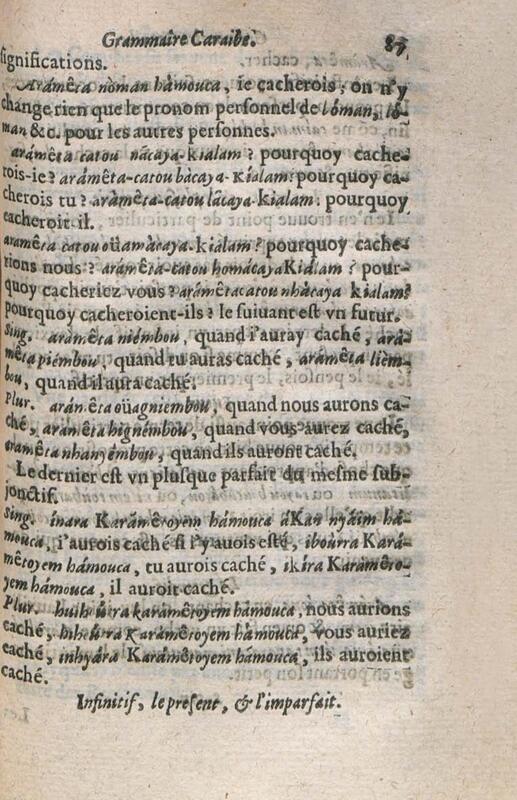 Grammaire Caraibe. 87
significations.
Arámêta nòman hámouca, ie cacherois; on n'y
change rien que le pronom personnel de lóman, tó-
man &c. pour les autres personnes.
arámêta catou nácaya-kialam? pourquoy cache-
rois-ie? arámêta-catou bàcaya-Kialam? pourquoy ca-
cherois tu? arámêta-catou lácaya-kialam. pourquoy
cacheroit-il.
aramêta catou oüamàcaya-kialam? pourquoy cache-
rions nous? arámêta-catou homácaya Kialam? pour-
quoy cacheriez vous? arámêtacatou nhàcaya kialam?
pourquoy cacheroient-ils? le suiuant est vn futur.
Sing. arámêta niémbou, quand i'auray caché, ará-
mêta piémbou, quand tu auras caché, arámêta lièm-
bou, quand il aura caché.
Plur. arámêta oüagniembou, quand nous aurons ca-
ché, arámêta hignémbou, quand vous aurez caché,
aramêta nhanyémbou, quand ils auront caché.
Le dernier est vn plusque parfait du mesme sub-
jonctif.
Sing. ínara Karámêtoyem hámouca áKan nyáim há-
mouca, i'aurois caché si i'y auois esté, iboúrra Kará-
mêtoyem hámouca, tu aurois caché, ikíra Karamêto-
yem hámouca, il auroit caché.
Plur. huihúirra karámêtoyem hámouca, nous aurions
caché, hiheúrra Karámêtoyem hámouca, vous auriez
caché, inhyára Karámêtoyem hámouca, ils auroient
caché.
Infinitif, le present, & l'imparfait.